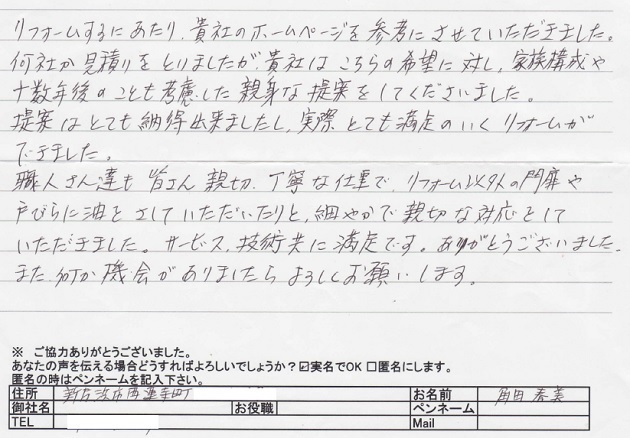 リフォームするにあたり、貴社のホームページを参考にさせていただきました。
何社か見積りをとりましたが、貴社はこちらの希望に対し、家族構成や
十数年後のことも考慮した親身な提案をしてくださいました。
提案はとても納得出来ましたし、実際とても満足のいくリフォームが
できました。
職人さん達も皆さん親切、丁寧な仕事で、リフォーム以外の門扉や
戸びらに油をさしていただいたりと、細やかで親切な対応をして
いただきました。サービス、技術共に満足です。ありがとうございました。
また何か機会がありましたらよろしくお願いします。
※ ご協力ありがとうございました。
あなたの声を伝える場合どうすればよろしいでしょうか？☑実名でOK ☐匿名にします。
匿名の時はペンネームを記入下さい。
住所 新居浜市西蓮寺町 お名前 角田 春美
御社名 お役職 ペンネーム
TEL Mail